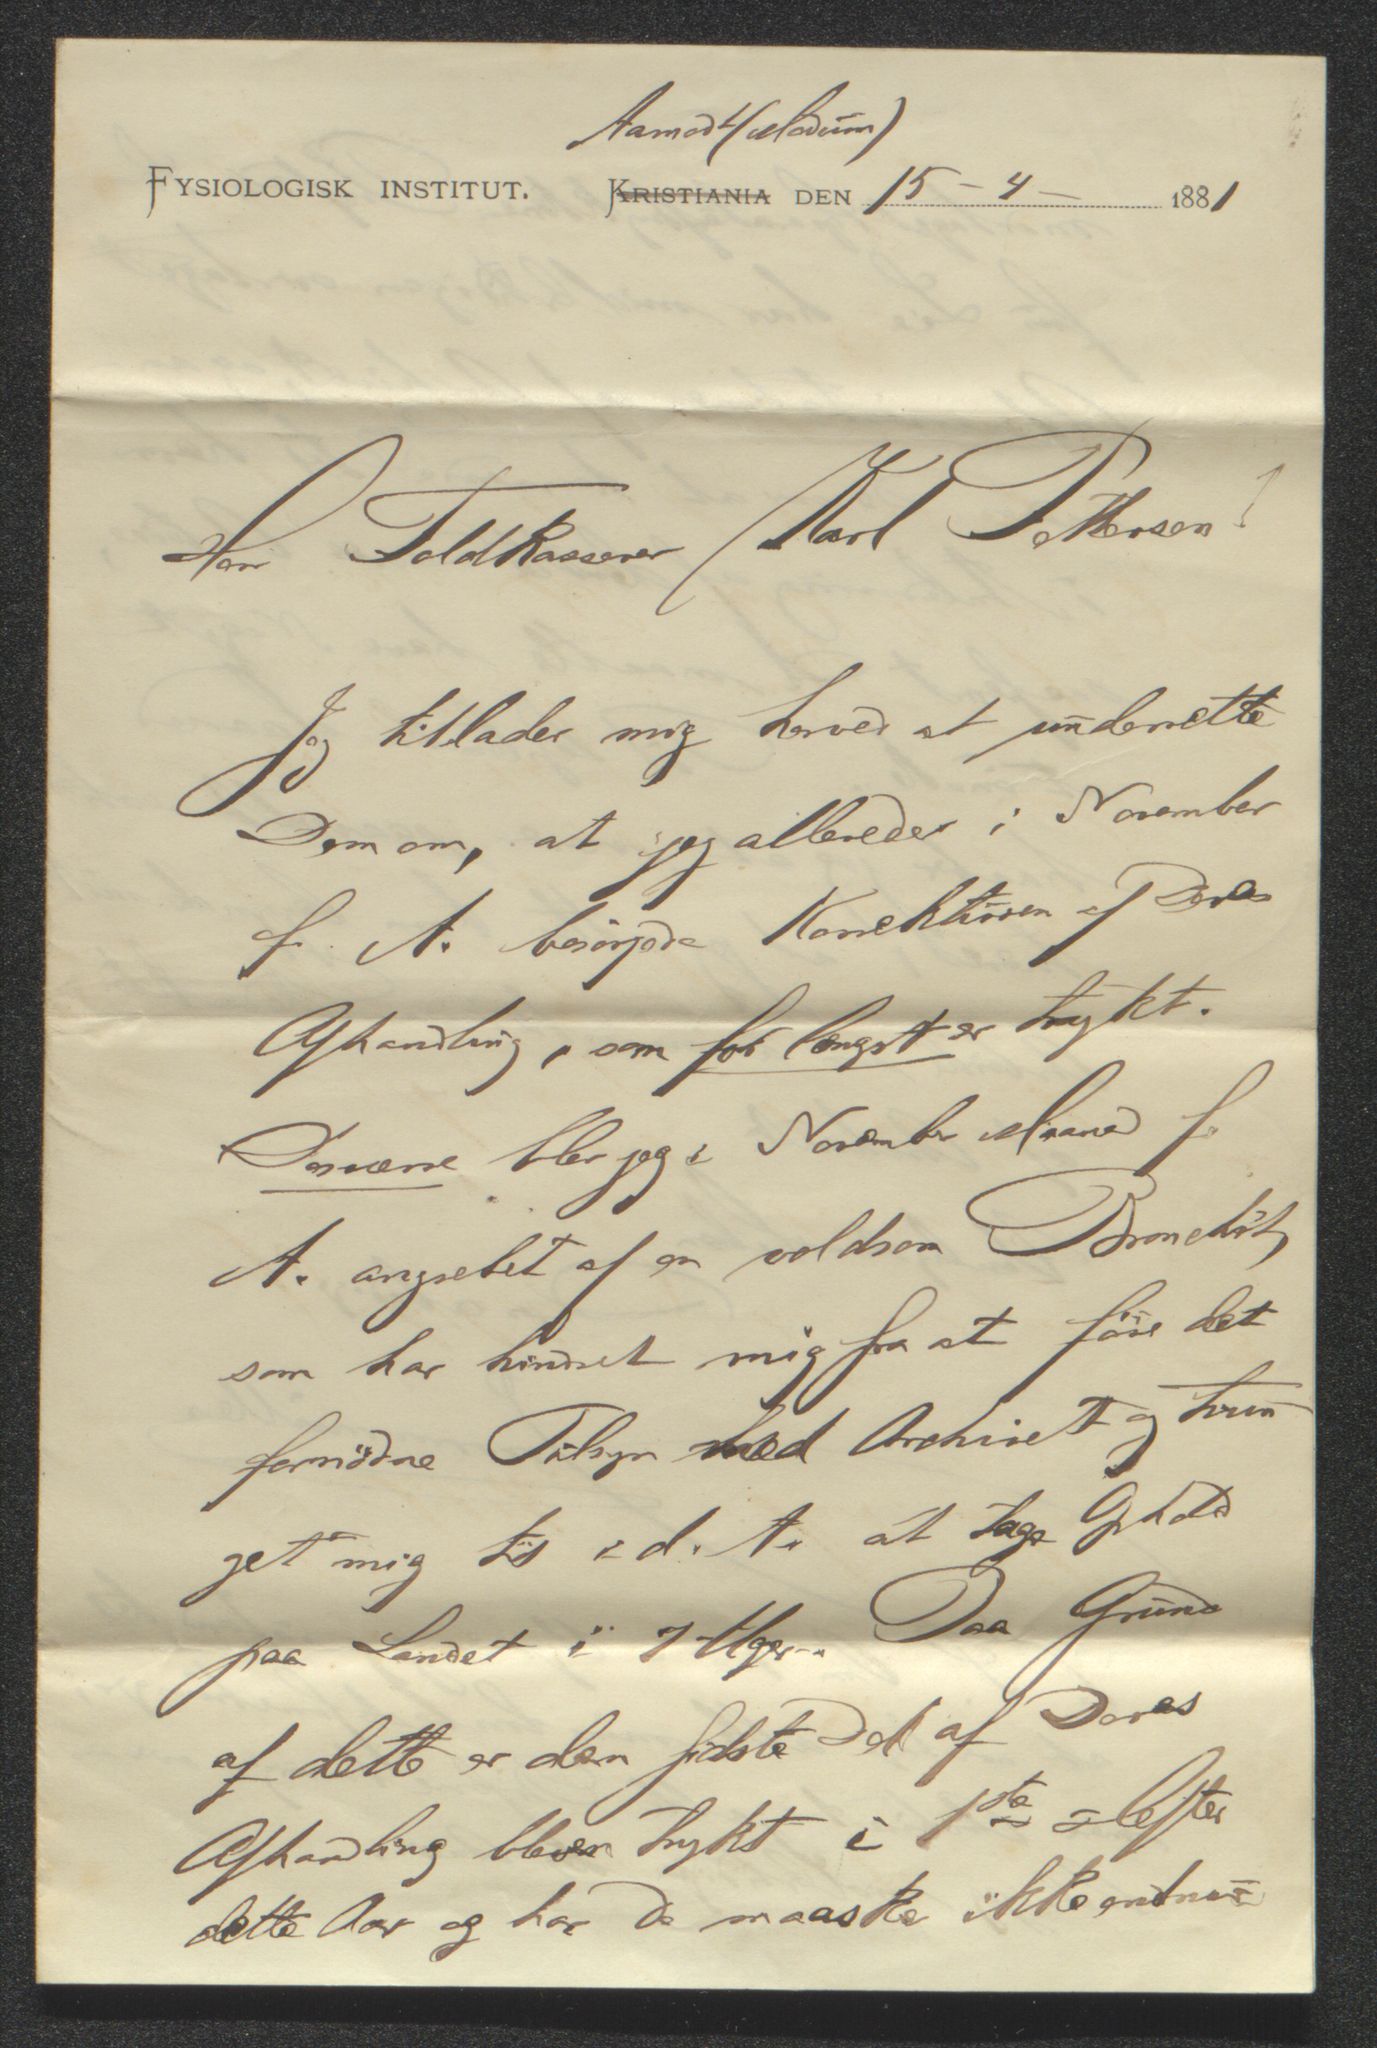 Aamodt (Modum)
FYSIOLOGISK INSTITUT. KRISTIANIA DEN 15-4- 1881
Herr Toldkasserer Karl Pettersen!
Jeg tillader mig herved at underrette
Dem om, at jeg allerede i November
f. A. besörgede Korrekturen af Deres
Afhandling, som for længst er trykt.
Desværre blev jeg i November Maaned f.
A. angrebet af en voldsom Bronchit,
som har hindret mig fra at före det
fornödne Tilsyn med Archivet og tvun
get mig til i d. A. at tage Ophold
paa Landet i 7 Uger. Paa Grund
af dette er den sidste Del af Deres
Afhandling bleven trykt i 1ste Hefter
dette Aar og har De maaske ikke endnu